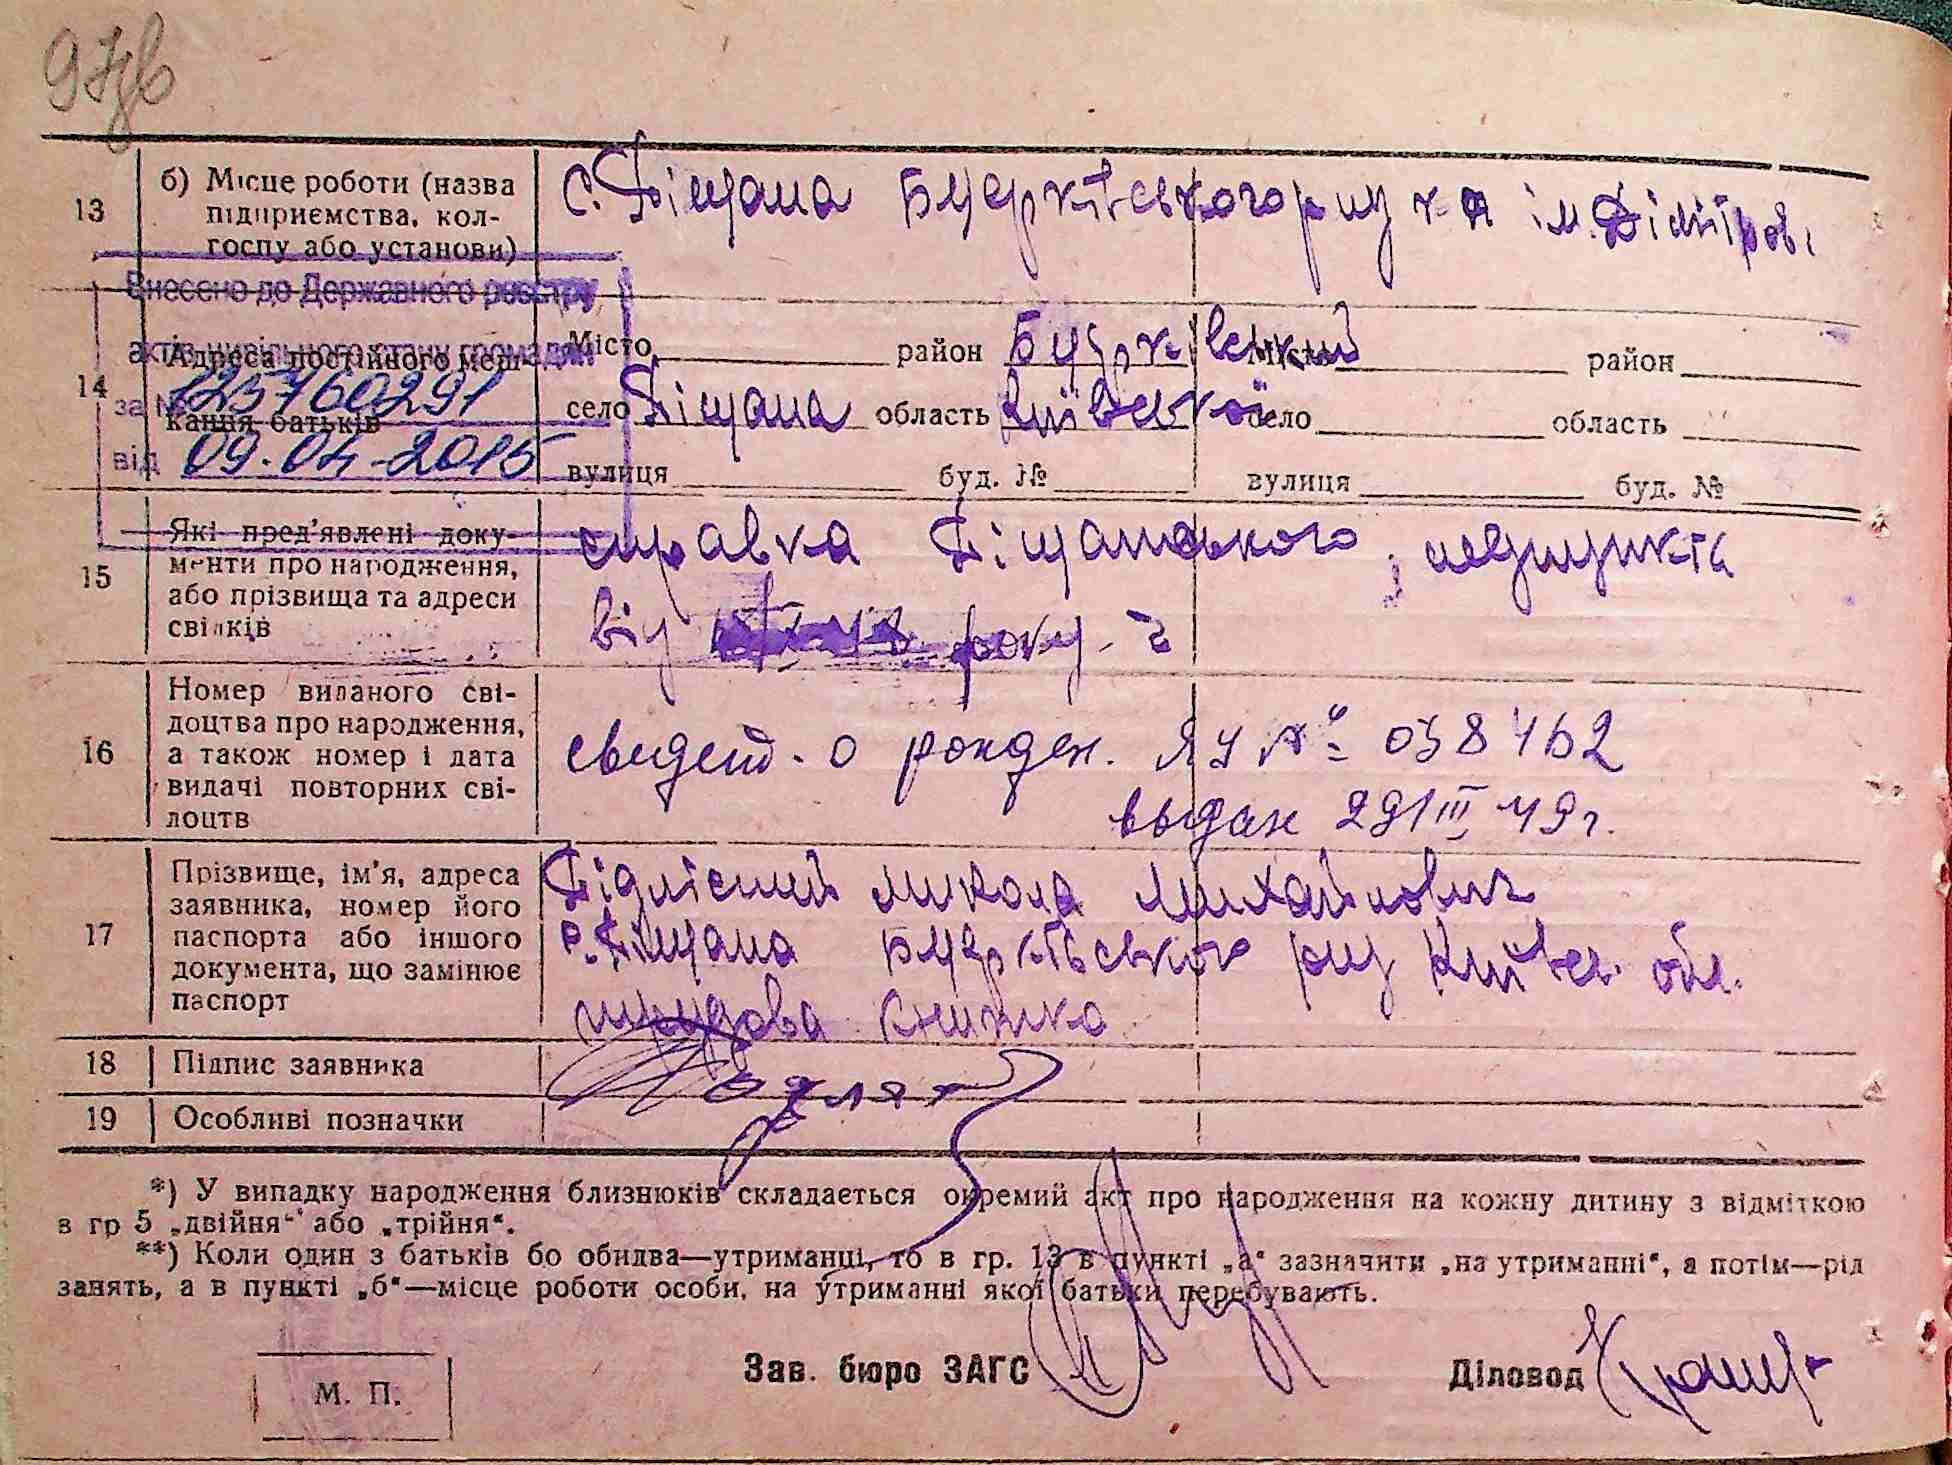 97зв
13 б) Місце роботи (назва
підприємства, кол-
госпу або установи)
с. Піщана р-ну к-п ім. Дімітров
Внесено до Державного реєстру
актів цивільного стану громадян
за № 1257160291
від 09.04.2015
14 Адреса постійного меш-
кання батьків
Місто район Місто район
село Піщана область Київської село область
вулиця буд. № вулиця буд. №
15 Які пред'явлені доку-
менти про народження,
або прізвища та адреси
свідків
справка Піщанського медпункта
від року
16 Номер виданого сві-
доцтва про народження,
а також номер і дата
видачі повторних сві-
доцтв
свидет. о рожден. ЯУ № 038462
выдан 29/III 49 г.
17 Прізвище, ім'я, адреса
заявника, номер його
паспорта або іншого
документа, що замінює
паспорт
Підлісний Микола Михайлович
с. Піщана р-ну Київськ. обл.
трудова книжка
18 Підпис заявника
19 Особливі позначки
*) У випадку народження близнюків складається окремий акт про народження на кожну дитину з відміткою
в гр 5 „двійня“ або „трійня“.
**) Коли один з батьків бо обидва—утриманці, то в гр. 13 в пункті „а“ зазначити „на утриманні“, а потім—рід
занять, а в пункті „б“—місце роботи особи, на утриманні якої батьки перебувають.
Зав. бюро ЗАГС Діловод
М. П.